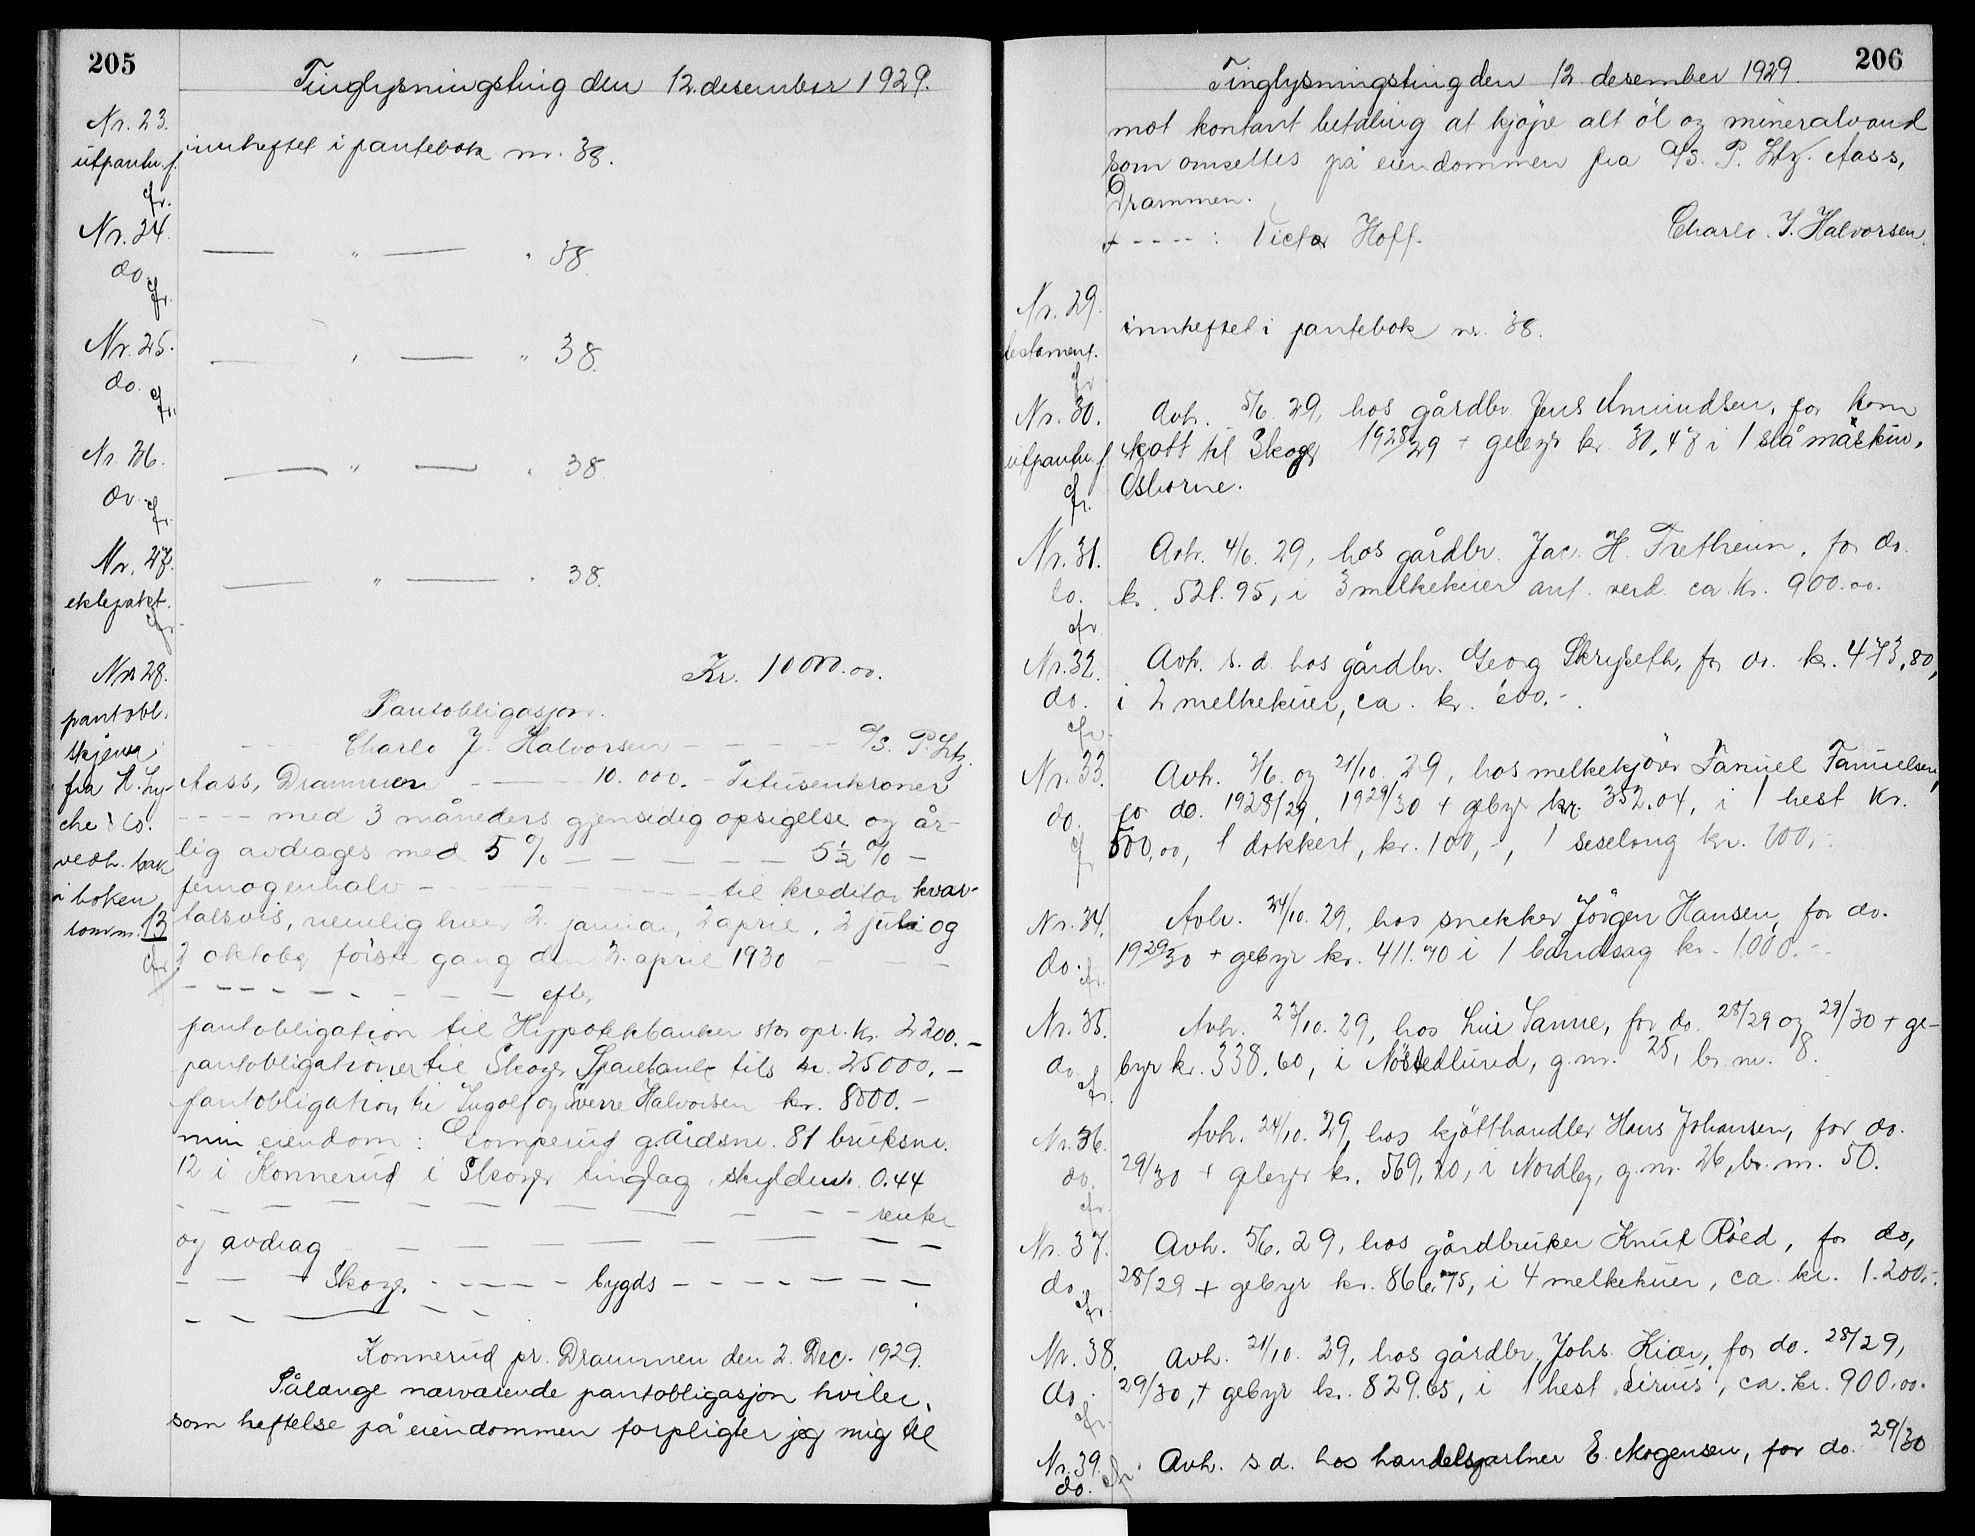 205
Tinglysningsting den 12. desember 1929.
Nr. 23.
utpantn.f.
cfr.
innheftet i pantebok nr. 38.
Nr. 24.
do.
cfr.
— " — " 38.
Nr. 25.
do.
cfr.
— " — " 38.
Nr. 26.
do.
cfr.
— " — " 38.
Nr. 27.
ektepakt.
cfr.
— " — " 38.
Nr. 28.
pantobl.
skjema
fra A. Ly-
che & Co.
vedh. bak
i boken
som nr. 13
cfr.
Kr. 10000.00.
Pantobligasjon.
Charls J. Halvorsen - - - - - A/S. P. Ltz.
Aass, Drammen - - - 10.000. - Titusenkroner
- - - - med 3 måneders gjensidig opsigelse og år-
lig avdrages med 5 % - - - - - 5 1/2 % -
femogenhalv - - - - - til kreditor kvar-
talsvis, nemlig hver 2. januar, 2 april, 2 juli og
2 oktober første gang den 2. april 1930 - - -
- - - - - - - - - efter
pantobligation til Hypotekbanken stor opr. kr. 2200.-
pantobligationer til Skoger Sparebank tils kr. 25000.-
pantobligation til Ingolf og Sverre Halvorsen kr. 8000.-
min eiendom: Gomperud gårdsnr. 81 bruksnr.
12 i Konnerud i Skoger tinglag, skyldm. 0.44
- - - - - - - - - - renter
og avdrag - - - - - - - -
- - - Skoger - - - - - bygds - - - - - - -
- - - - -
Konnerud pr. Drammen den 2. Dec. 1929.
Sålænge nærværende pantobligasjon hviler,
som heftelse på eiendommen forpligter jeg mig til
206
Tinglysningsting den 12. desember 1929.
mot kontant betaling at kjøpe alt øl og mineralvand
som omsettes på eiendommen fra A/S. P. Ltz. Aass,
Drammen.
Charls. J. Halvorsen.
+ - - - - : Victor Hoff.
Nr. 29.
testament.
cfr.
innheftet i pantebok nr. 38.
Nr. 30.
utpantn.f.
cfr.
Avh. 5/6. 29, hos gårdbr. Jens Amundsen, for kom
skatt til Skoger 1928/29 + gebyr kr. 30,47 i 1 slåmaskin,
Osborne.
Nr. 31.
do.
cfr.
Avh. 4/6. 29, hos gårdbr. Jac. H. Tretheim, for do.
kr. 521.95, i 3 melkekuer ant. verd. ca. kr. 900.00.
Nr. 32.
do.
cfr.
Avh. s. d. hos gårdbr. Georg Skryseth, for do. kr. 473,80,
i 2 melkekuer, ca. kr. 600.-.
Nr. 33.
do.
cfr
Avh. 3/6. og 21/10. 29, hos melkekjører Fanuel Fanuelsen,
for do. 1928/29, 1929/30 + gebyr kr. 352.04, i 1 hest kr.
500.00, 1 dokkert, kr. 100,-, 1 seselong kr. 100,-.
Nr. 34.
do.
cfr.
Avh. 24/10. 29, hos snekker Jørgen Hansen, for do.
1929/30 + gebyr kr. 411.70 i 1 båndsag kr. 1000.-
Nr. 35.
do.
cfr.
Avh. 23/10. 29, hos Sanne, for do. 28/29 og 29/30 + ge-
byr kr. 338.60, i Nøstedlund, g.nr. 25, br. nr. 8.
Nr. 36.
do.
cfr.
Avh. 24/10. 29, hos kjøtthandler Hans Johansen, for do.
29/30 + gebyr kr. 569,20, i Nordby, g.nr. 26, br. nr. 50.
Nr. 37.
do.
cfr.
Avh. 5/6. 29, hos gårdbruker Knut Røed, for do,
28/29 + gebyr kr. 866.75, i 4 melkekuer, ca. kr. 1.200,-.
Nr. 38.
do.
cfr.
Avh. 21/10. 29, hos gårdbr. Johs. Kiær, for do. 28/29,
29/30, + gebyr kr. 829.65, i 1 hest „Sirius", ca. kr. 900.00.
Nr. 39.
do.
cfr.
Avh. s d. hos handelsgartner E. Mogensen, for do. 29/30